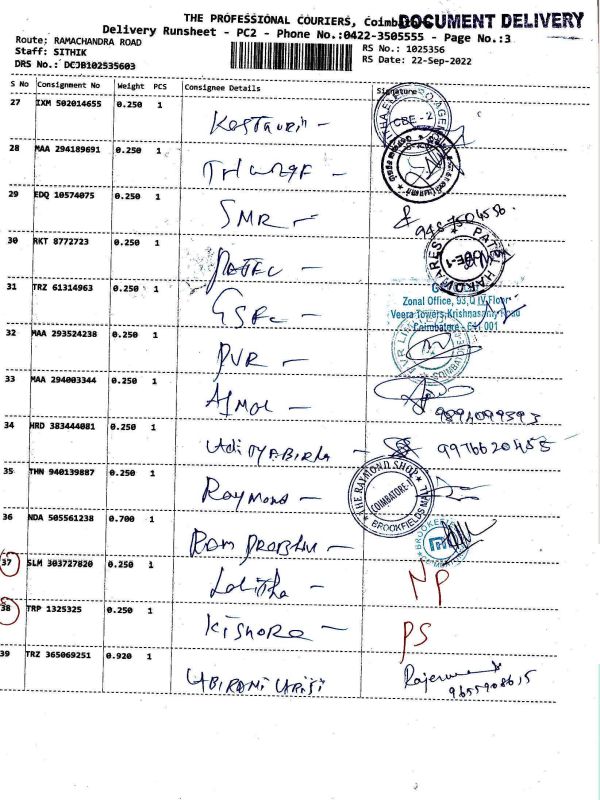 THE PROFESSIONAL COURIERS, Coimb
DOCUMENT DELIVERY
Delivery Runsheet - PC2 - Phone No.:0422-3505555 - Page No.:3
Route: RAMACHANDRA ROAD
Staff: SITHIK
DRS No.: DCJB102535603
RS No.: 1025356
RS Date: 22-Sep-2022
S No Consignment No Weight PCS Consignee Details Signature
27 IXM 502014655 0.250 1
CBE - 2
28 MAA 294189691 0.250 1
29 EDQ 10574075 0.250 1 SMR -
30 RKT 8772723 0.250 1
PATEL HARDWARES
31 TRZ 61314963 0.250 1
Zonal Office, 93,Q IV Floor
Veera Towers, Krishnasamy Road
Coimbatore - 641 001
32 MAA 293524238 0.250 1 PVR -
33 MAA 294003344 0.250 1 AJMAL -
34 HRD 383444081 0.250 1 AdiTYABIRLA -
35 THN 940139887 0.250 1 Raymond -
THE RAYMOND SHOP
COIMBATORE
BROOKFIELDS MALL
36 NDA 505561238 0.700 1
37 SLM 303727820 0.250 1 Lalitha - NP
38 TRP 1325325 0.250 1 Kishore - PS
39 TRZ 365069251 0.920 1